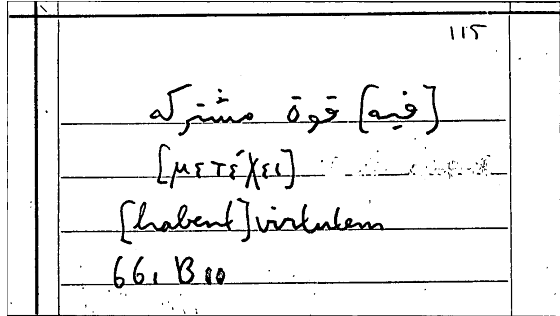 ١١٥
[فيه] قوة مشتركة
[μετέχει]
[habent] virtutem
66, B 10